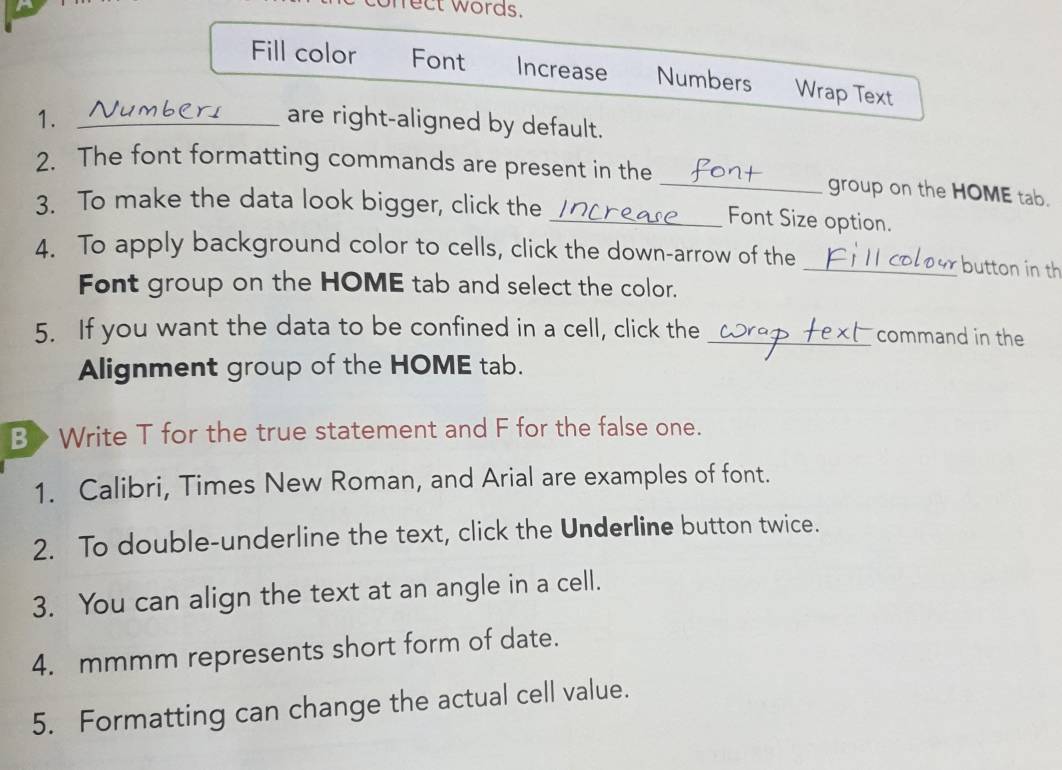 A
correct words.
Fill color Font Increase Numbers Wrap Text
1. Numbers are right-aligned by default.
2. The font formatting commands are present in the font group on the HOME tab.
3. To make the data look bigger, click the Increase Font Size option.
4. To apply background color to cells, click the down-arrow of the Fill colour button in th
Font group on the HOME tab and select the color.
5. If you want the data to be confined in a cell, click the wrap text command in the
Alignment group of the HOME tab.
B Write T for the true statement and F for the false one.
1. Calibri, Times New Roman, and Arial are examples of font.
2. To double-underline the text, click the Underline button twice.
3. You can align the text at an angle in a cell.
4. mmmm represents short form of date.
5. Formatting can change the actual cell value.